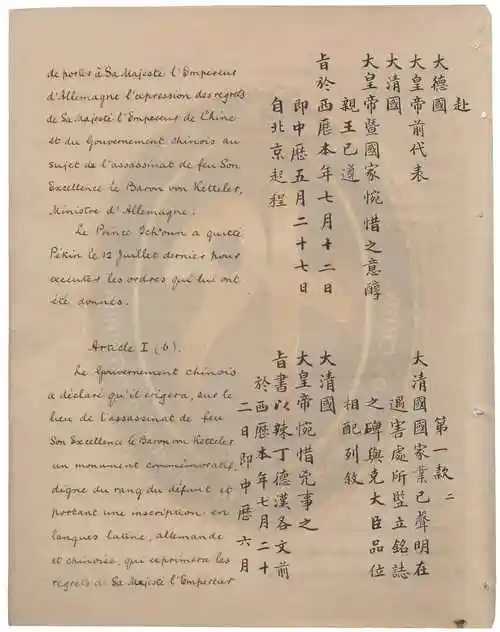 de porter à Sa Majesté l'Empereur
d'Allemagne l'expression des regrets
de Sa Majesté l'Empereur de Chine
et du Gouvernement chinois au
sujet de l'assassinat de feu Son
Excellence le Baron von Ketteler,
Ministre d'Allemagne.
Le Prince Tch'oun a quitté
Pékin le 12 Juillet dernier pour
exécuter les ordres qui lui ont
été donnés.
Article I (b).
Le Gouvernement chinois
a déclaré qu'il érigera, sur le
lieu de l'assassinat de feu
Son Excellence le Baron von Ketteler
un monument commémoratif,
digne du rang du défunt et
portant une inscription en
langues latine, allemande
et chinoise, qui exprimera les
regrets de Sa Majesté l'Empereur
赴
大德國
大皇帝前代表
大清國
大皇帝暨國家惋惜之意醇
親王已遵
旨於西歷本年七月十二日
即中歷五月二十七日
自北京起程
第一款二
大清國國家業已聲明在
遇害處所竪立銘誌
之碑與克大臣品位
相配列敘
大清國
大皇帝惋惜兇事之
旨書以辣丁德漢各文前
於西歷本年七月二十
二日即中歷六月